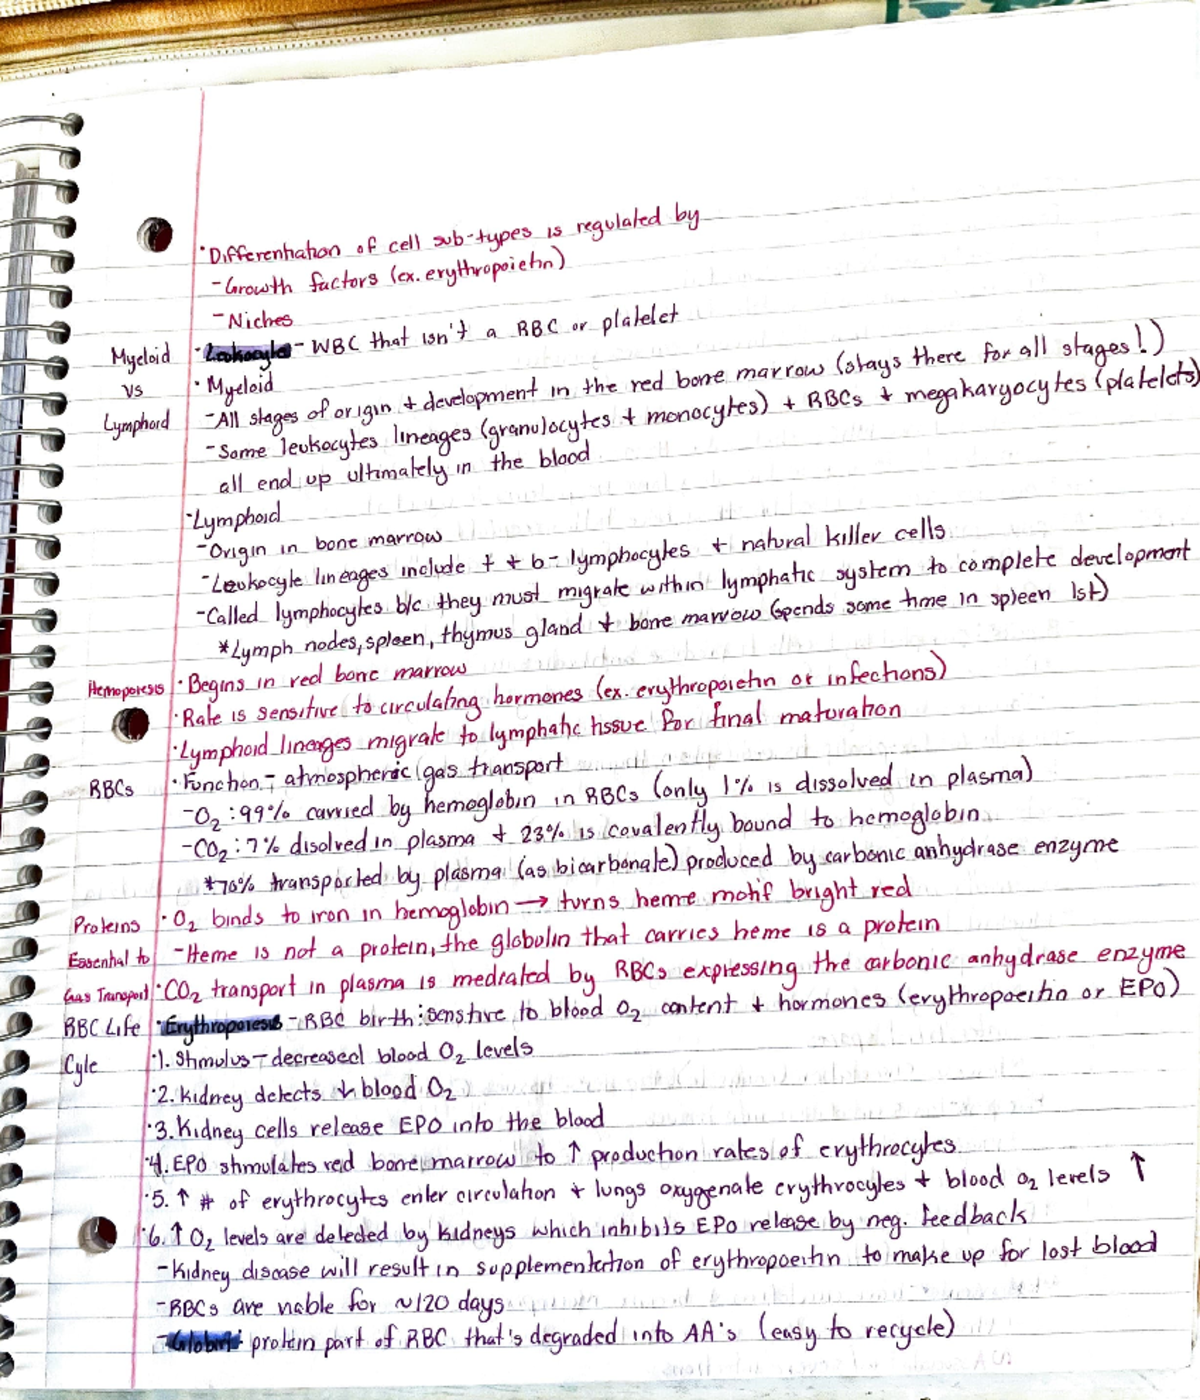 ·Differentiation of cell sub-types is regulated by
-Growth factors (ex. erythropoietin)
-Niches
Myeloid ·Leokocyte - WBC that isn't a RBC or platelet
vs · Myeloid
Lymphoid -All stages of origin + development in the red bone marrow (stays there for all stages!)
-Some leukocytes lineages (granulocytes + monocytes) + RBCs + megakaryocytes (platelets)
all end up ultimately in the blood
·Lymphoid
-Origin in bone marrow
-Leukocyte lineages include t + b- lymphocytes + natural killer cells
-Called lymphocytes b/c they must migrate within lymphatic system to complete development
*Lymph nodes, spleen, thymus gland + bone marrow (spends some time in spleen 1st)
Hemopoiesis ·Begins in red bone marrow
·Rate is sensitive to circulating hormones (ex. erythropoietin or infections)
·Lymphoid lineages migrate to lymphatic tissue for final maturation
RBCs ·Function - atmospheric gas transport
-O₂ : 99% carried by hemoglobin in RBCs (only 1% is dissolved in plasma)
-CO₂ : 7% disolved in plasma + 23% is covalently bound to hemoglobin
*70% transported by plasma (as bicarbonate) produced by carbonic anhydrase enzyme
Proteins ·O₂ binds to iron in hemoglobin → turns heme motif bright red
Essential to -Heme is not a protein, the globulin that carries heme is a protein
Gas Transport ·CO₂ transport in plasma is mediated by RBCs expressing the carbonic anhydrase enzyme
RBC Life ·Erythropoiesis - RBC birth: senstive to blood O₂ content + hormones (erythropoeitin or EPO)
Cyle ·1. Stimulus - decreased blood O₂ levels
·2. Kidney detects ↓ blood O₂
·3. Kidney cells release EPO into the blood
·4. EPO stimulates red bone marrow to ↑ production rates of erythrocytes
·5. ↑ # of erythrocytes enter circulation + lungs oxygenate erythrocytes + blood O₂ levels ↑
·6. ↑ O₂ levels are detected by kidneys which inhibits EPO release by neg. feedback
-Kidney disease will result in supplementation of erythropoeitin to make up for lost blood
-RBCs are viable for ~120 days
-Globin: protein part of RBC that's degraded into AA's (easy to recycle)